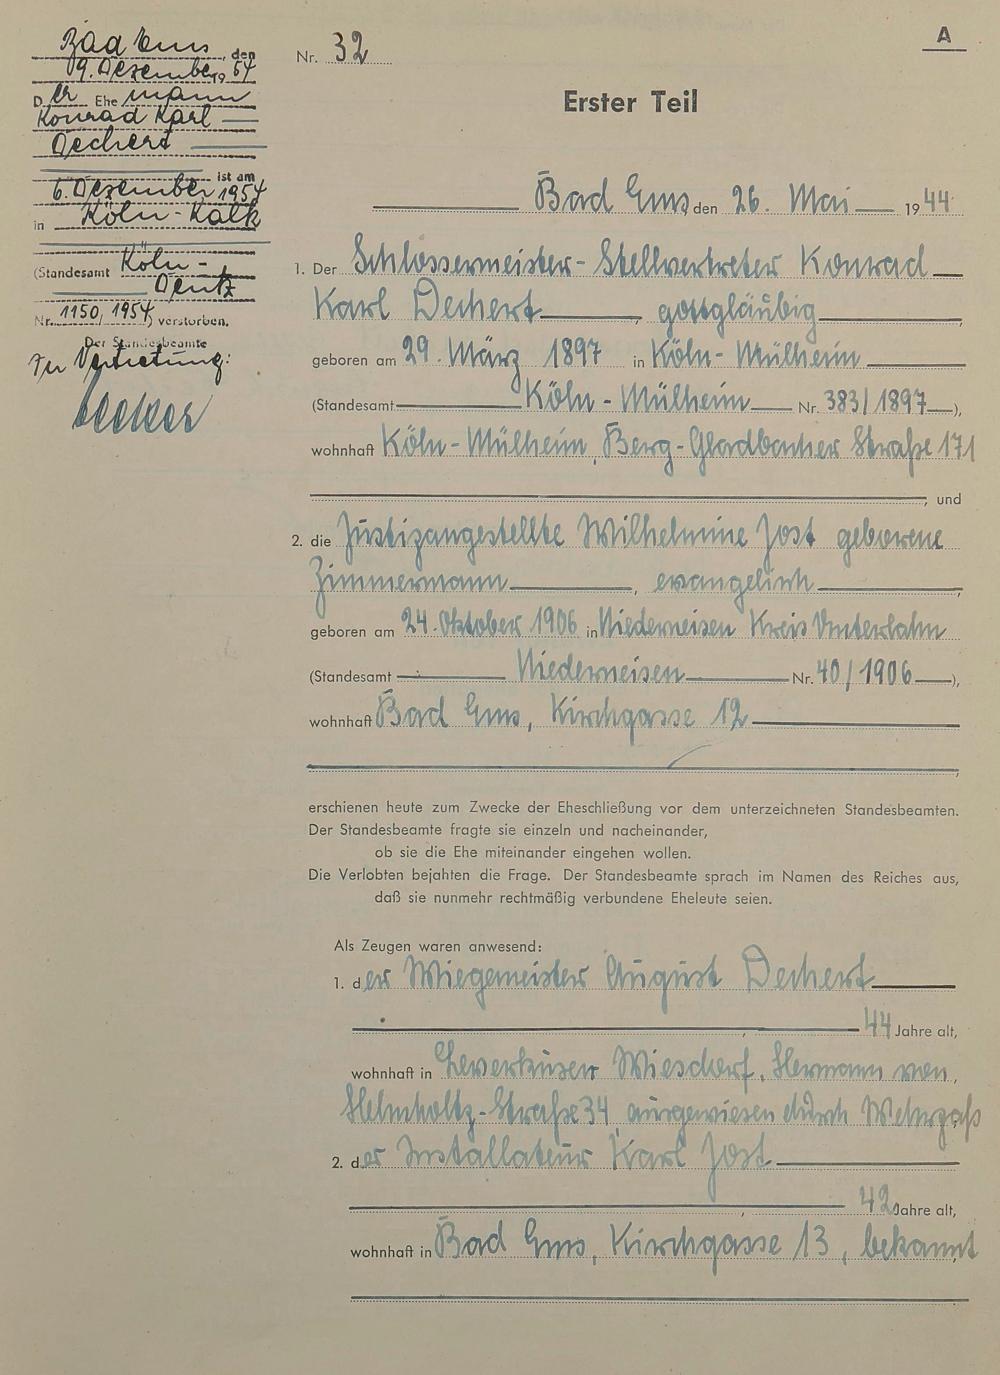 Bad Ems, den
9. Dezember 1954
Der Ehemann
Konrad Karl
Dechert
ist am
6. Dezember 1954
in Köln-Kalk
(Standesamt Köln-
Deutz
Nr. 1150/1954) verstorben.
Der Standesbeamte
In Vertretung:
Becker
A
Nr. 32
Erster Teil
Bad Ems, den 26. Mai 1944
1. Der Schlossermeister-Stellvertreter Konrad
Karl Dechert, gottgläubig,
geboren am 29. März 1897 in Köln-Mülheim
(Standesamt Köln-Mülheim Nr. 383/1897),
wohnhaft Köln-Mülheim, Berg-Gladbacher Straße 171
, und
2. die Justizangestellte Wilhelmine Jost geborene
Zimmermann, evangelisch,
geboren am 24. Oktober 1906 in Niederneisen Kreis Unterlahn
(Standesamt Niederneisen Nr. 40/1906),
wohnhaft Bad Ems, Kirchgasse 12
,
erschienen heute zum Zwecke der Eheschließung vor dem unterzeichneten Standesbeamten.
Der Standesbeamte fragte sie einzeln und nacheinander,
ob sie die Ehe miteinander eingehen wollen.
Die Verlobten bejahten die Frage. Der Standesbeamte sprach im Namen des Reiches aus,
daß sie nunmehr rechtmäßig verbundene Eheleute seien.
Als Zeugen waren anwesend:
1. der Wiegemeister August Dechert
, 44 Jahre alt,
wohnhaft in Leverkusen Wiesdorf, Hermann von,
Helmholtz-Straße 34, ausgewiesen durch Wehrpaß
2. der Installateur Karl Jost
, 42 Jahre alt,
wohnhaft in Bad Ems, Kirchgasse 13, bekannt